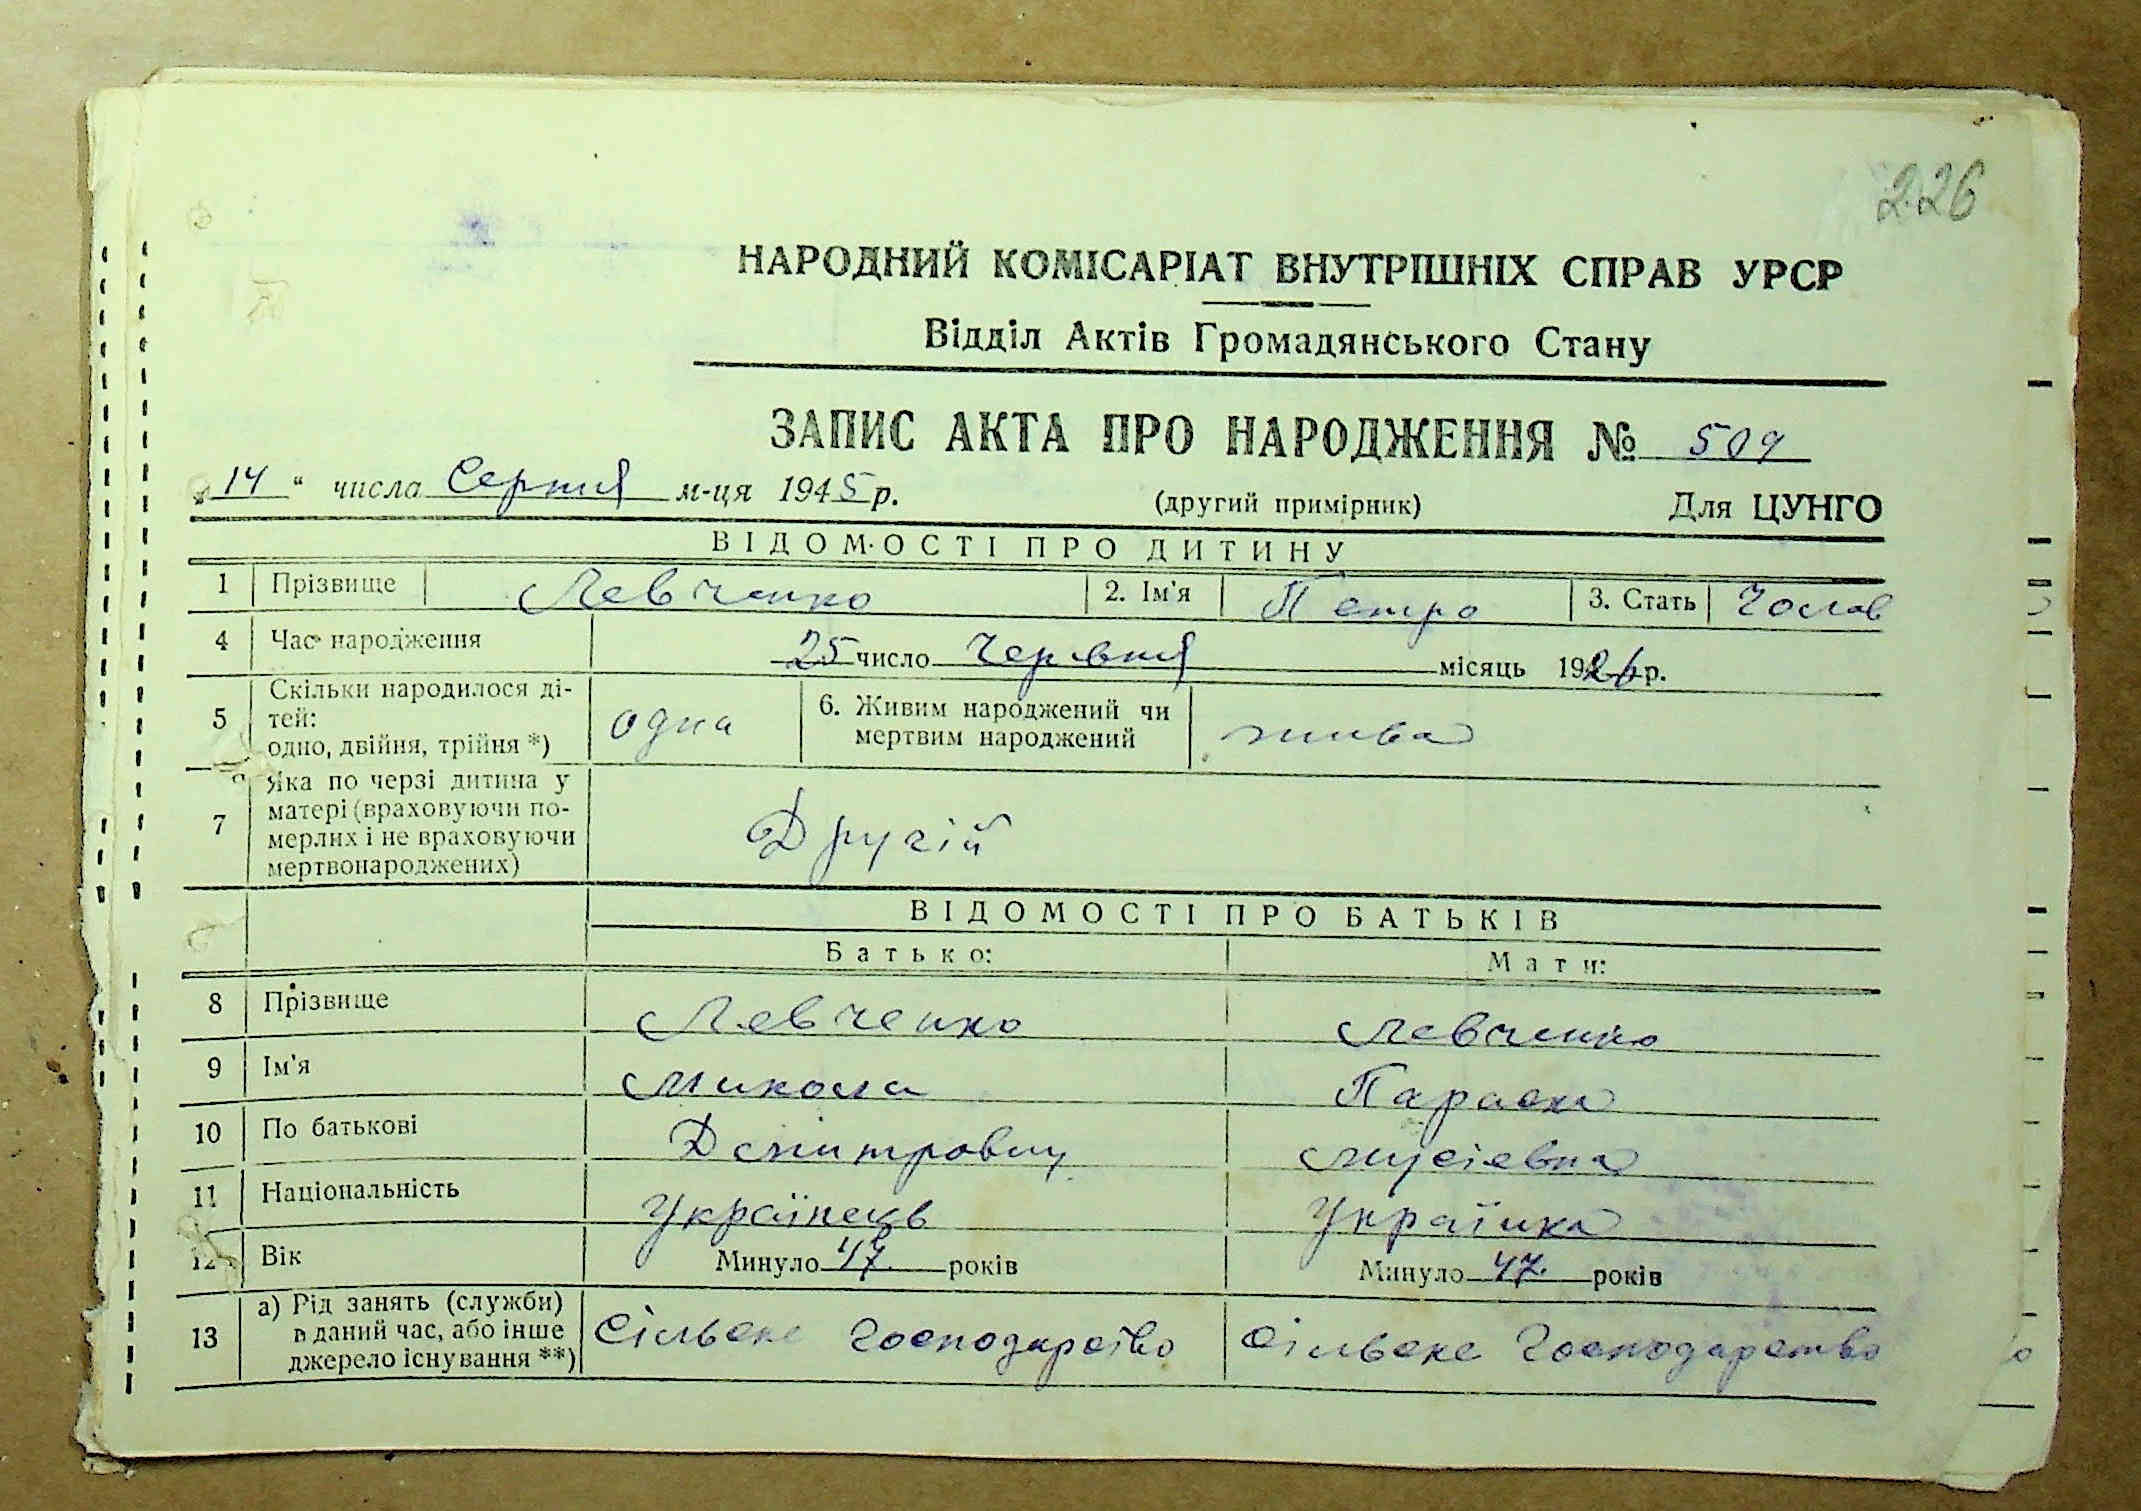 226
НАРОДНИЙ КОМІСАРІАТ ВНУТРІШНІХ СПРАВ УРСР
Відділ Актів Громадянського Стану
ЗАПИС АКТА ПРО НАРОДЖЕННЯ № 509
„14“ числа Серпня м-ця 1945 р.
(другий примірник) Для ЦУНГО
ВІДОМОСТІ ПРО ДИТИНУ
1 Прізвище Левченко 2. Ім'я Петро 3. Стать Чолов
4 Час народження 25 число Червня місяць 1926 р.
5 Скільки народилося ді-
тей:
одно, двійня, трійня *) одна
6. Живим народжений чи
мертвим народжений жива
7 Яка по черзі дитина у
матері (враховуючи по-
мерлих і не враховуючи
мертвонароджених) Другій
ВІДОМОСТІ ПРО БАТЬКІВ
Батько: Мати:
8 Прізвище Левченко Левченко
9 Ім'я Микола Параска
10 По батькові Дмитрович Мусієвна
11 Національність Українець Українка
12 Вік Минуло 47 років Минуло 47 років
13 а) Рід занять (служби)
в даний час, або інше
джерело існування **) Сільске господарство Сільске господарство